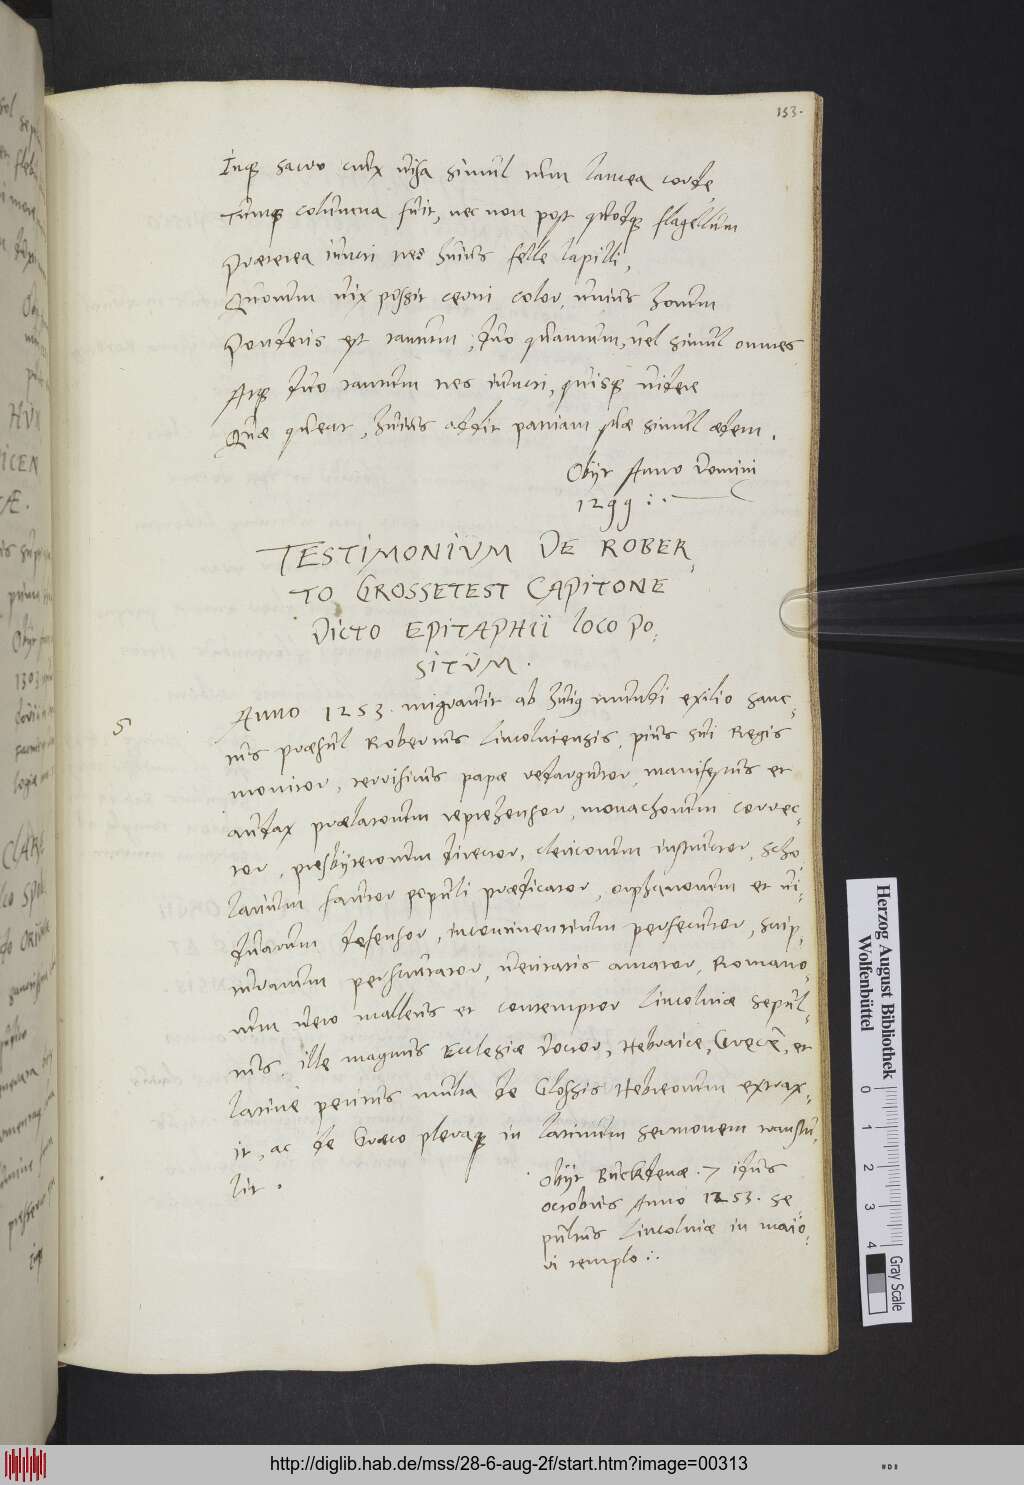 153.
Inq; sacro crux visa simul cum lancea corde
Tumq; columna fuit, nec non post quoq; flagellum
Præterea iuncti tres huius felle lapilli,
Quorum vix possit cerni color, unius horum
Ponderis est tantum, duo quantum, vel simul omnes
Atq; duo tantum tres iuncti, quisq; videre
Quæ queat, huius addit patriam suæ simul ædem.
Obijt Anno Domini
1299 :.
TESTIMONIUM DE ROBER,
TO GROSSETEST CAPITONE
DICTO EPITAPHII LOCO PO,
SITUM.
5
Anno 1253. migravit ab huius mundi exilio sanc,
tus præsul Robertus Lincolniensis, pius sui Regis
monitor, terrificus papæ redargutor, manifestus et
audax prælatorum reprehensor, monachorum correc,
tor, presbyterorum director, clericorum instructor, scho,
larium fautor populi prædicator, orphanorum et vi,
duarum defensor, incontinentium persecutor, scrip,
turarum perscrutator, veritatis amator, Romano,
rum vero malleus et contemptor Lincolniæ sepul,
tus. ille magnus Ecclesiæ doctor, Hebraice, Græcè, et
latinè peritus multa de Glossis Hebreorum extrax,
it, ac de Græco pleraq; in latinum sermonem transtu,
lit.
Obijt Buckdenæ . 7 idus
octobris Anno 1253. se,
pultus Lincolniæ in maio,
ri templo :.
Herzog August Bibliothek
Wolfenbüttel
0 1 2 3 4
Gray Scale
http://diglib.hab.de/mss/28-6-aug-2f/start.htm?image=00313